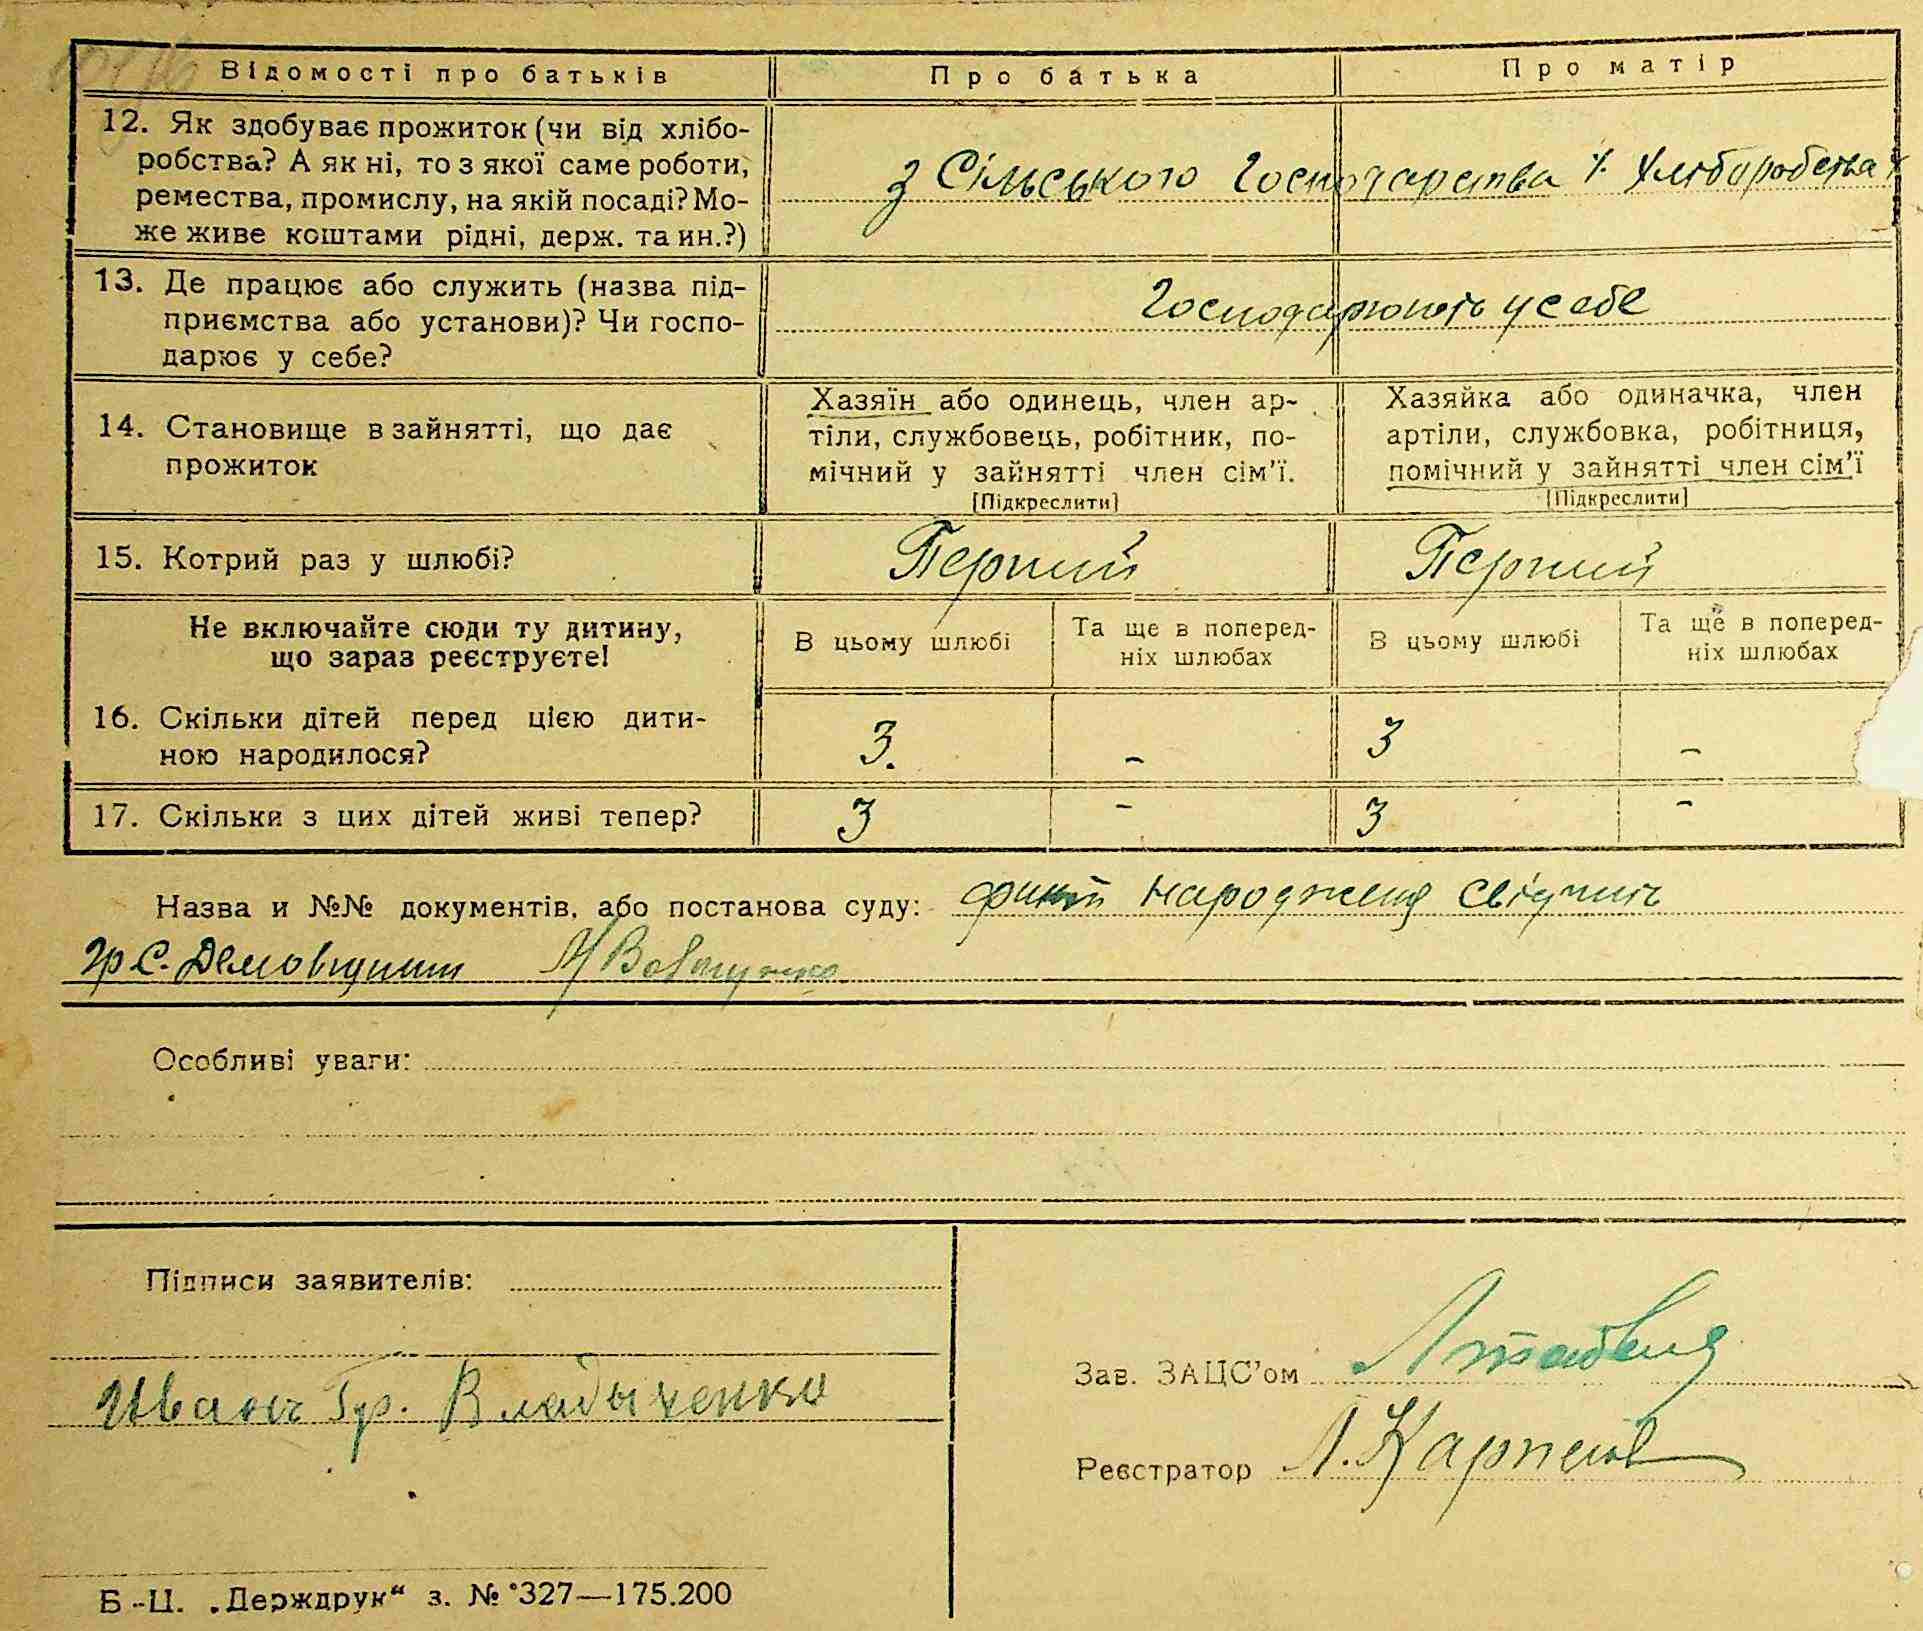 Відомості про батьків
Про батька
Про матір
12. Як здобуває прожиток (чи від хлібо-
робства? А як ні, то з якої саме роботи,
ремества, промислу, на якій посаді? Мо-
же живе коштами рідні, держ. та ин.?)
з Сільського Господарства /. Хліборобства
13. Де працює або служить (назва під-
приємства або установи)? Чи госпо-
дарює у себе?
Господарюють у себе
14. Становище в зайнятті, що дає
прожиток
Хазяїн або одинець, член ар-
тіли, службовець, робітник, по-
мічний у зайнятті член сім'ї.
[Підкреслити]
Хазяйка або одиначка, член
артіли, службовка, робітниця,
помічний у зайнятті член сім'ї
[Підкреслити]
15. Котрий раз у шлюбі?
Перший
Перший
Не включайте сюди ту дитину,
що зараз реєструєте!
В цьому шлюбі
Та ще в поперед-
ніх шлюбах
В цьому шлюбі
Та ще в поперед-
ніх шлюбах
16. Скільки дітей перед цією дити-
ною народилося?
3. - 3 -
17. Скільки з цих дітей живі тепер?
3 - 3 -
Назва и №№ документів, або постанова суду: народження свідчить
гр. С.
Особливі уваги:
Підписи заявителів:
Иванъ Гр. Владыченко
Зав. ЗАЦС'ом
Реєстратор Л. Карпенко
Б-Ц. „Держдрук“ з. № 327—175.200